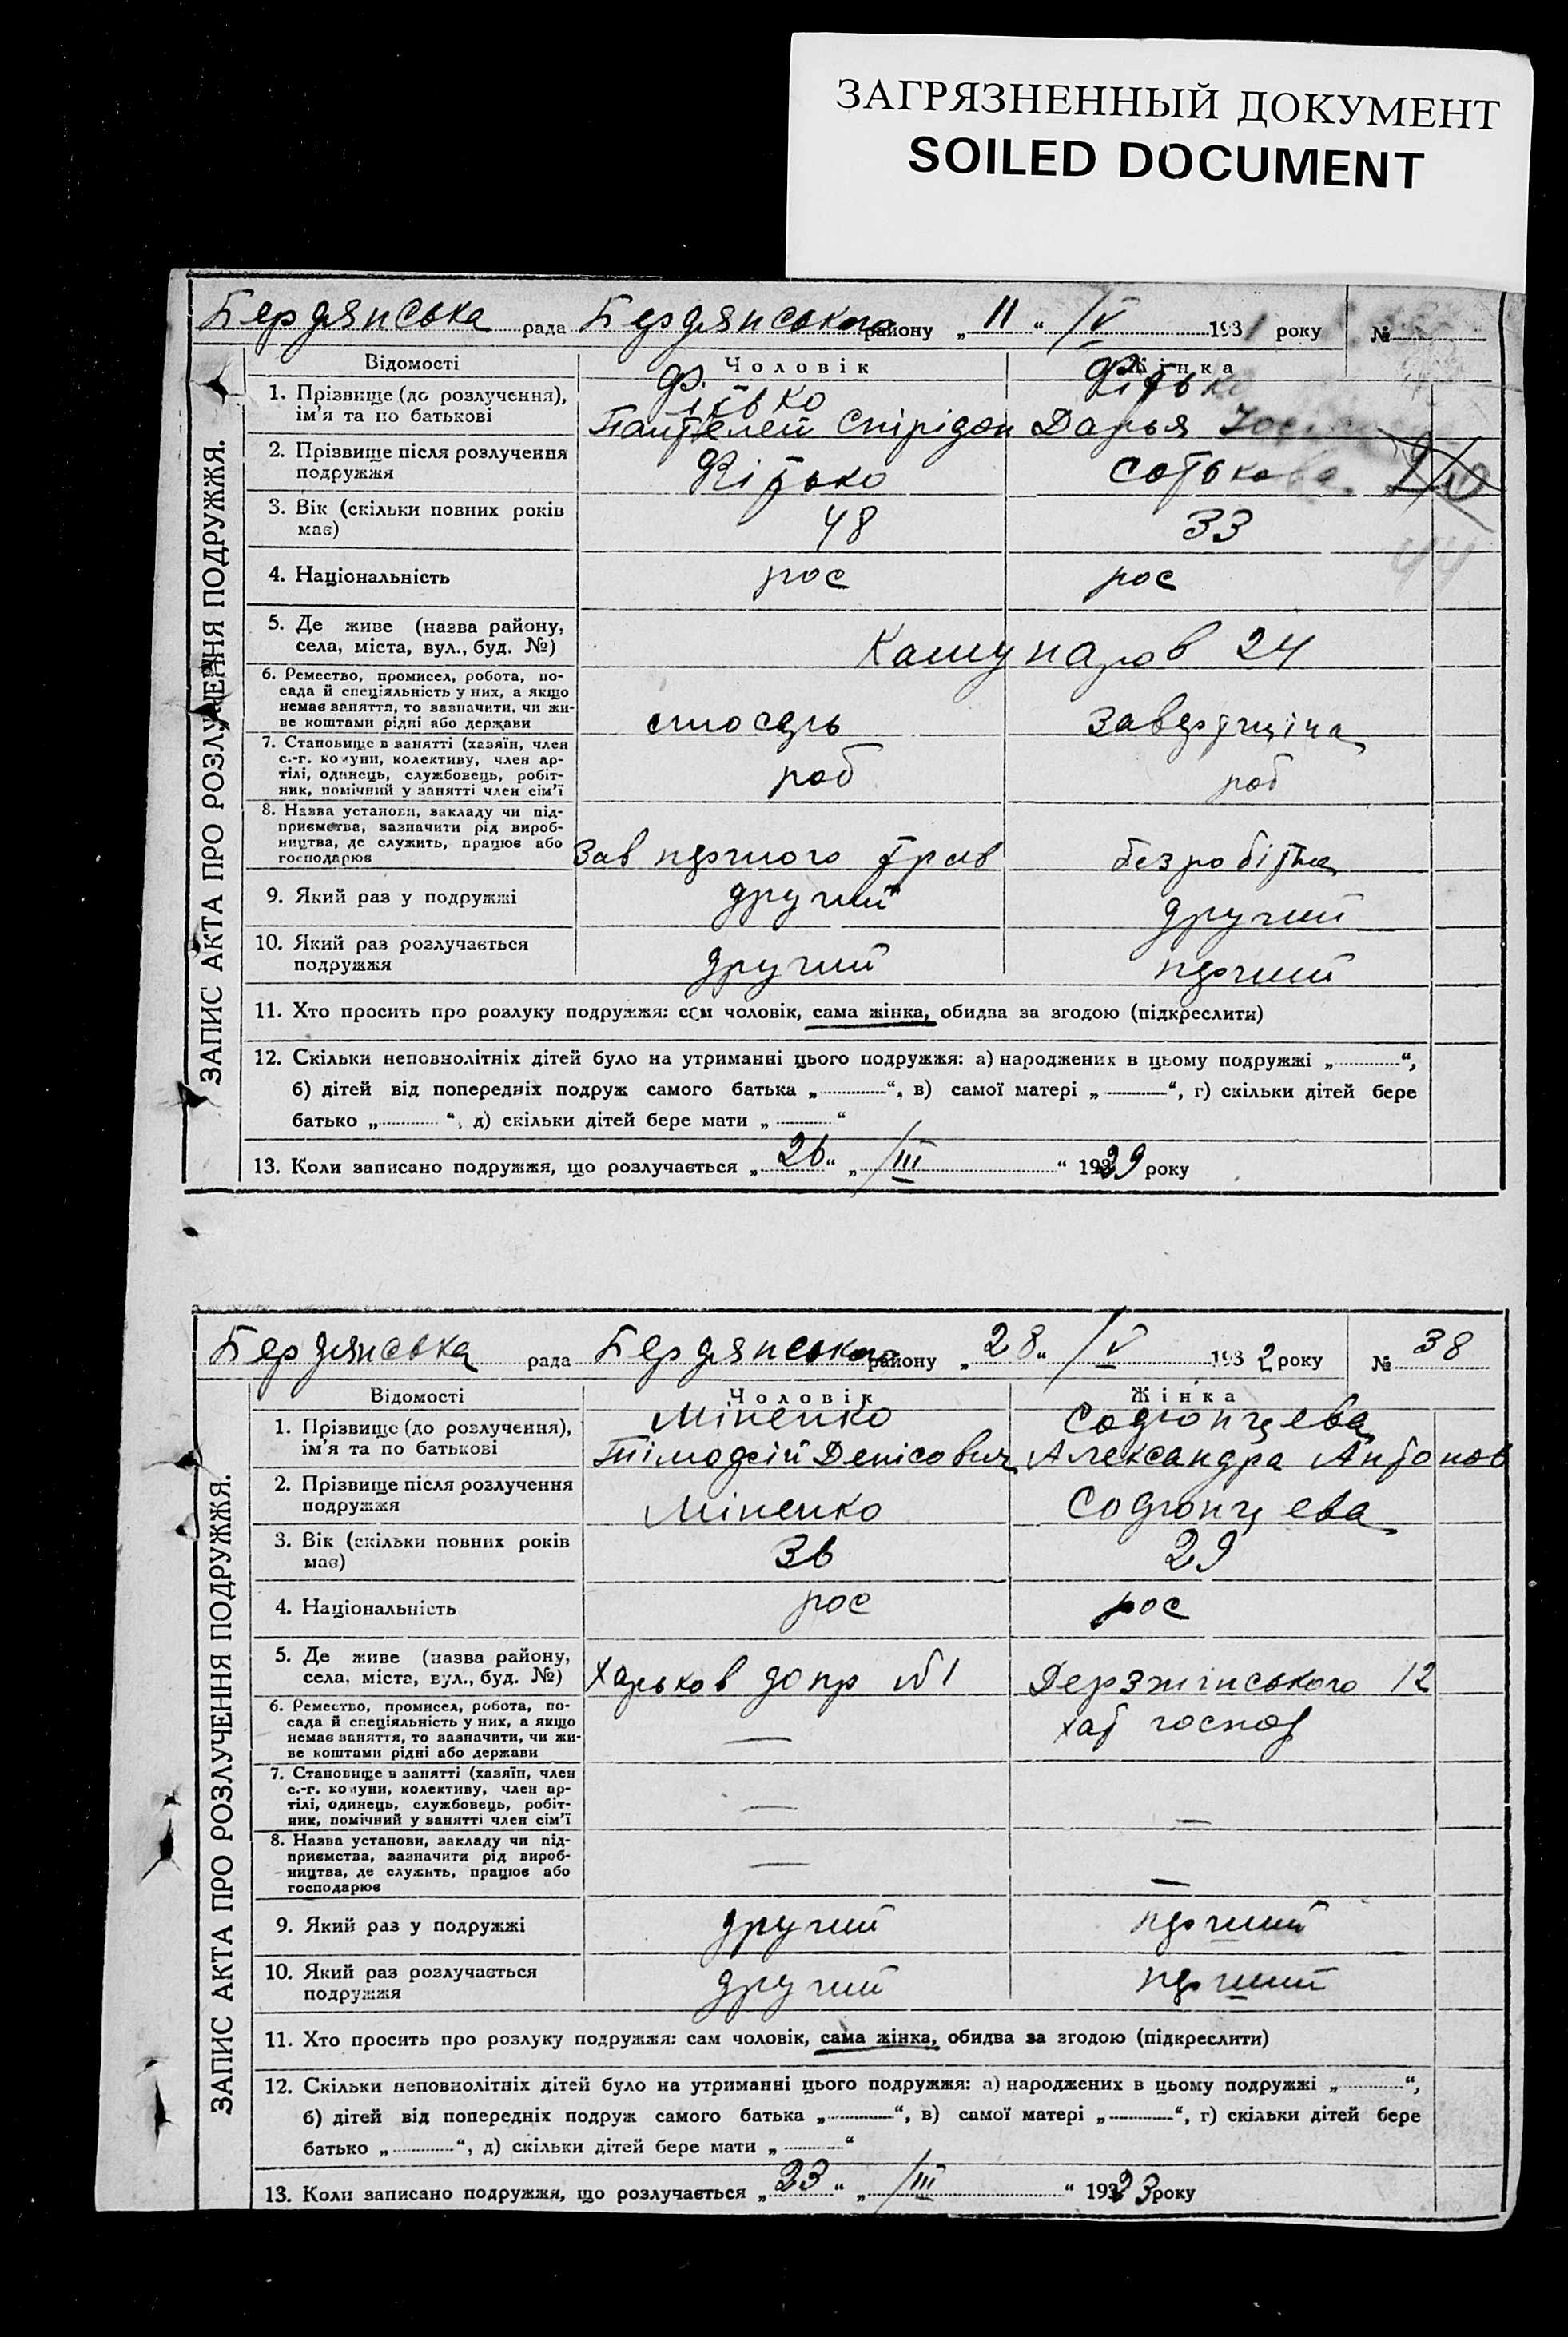 ЗАГРЯЗНЕННЫЙ ДОКУМЕНТ
SOILED DOCUMENT
ЗАПИС АКТА ПРО РОЗЛУЧЕННЯ ПОДРУЖЖЯ.
Бердянська рада Бердянського району „11“ /V 1931 року №
Відомості Чоловік Жінка
1. Прізвище (до розлучення), ім'я та по батькові
Фітько
Пантелей Спірідон Дарья
2. Прізвище після розлучення подружжя
Фітько Сотькова
3. Вік (скільки повних років має)
48 33
4. Національність
рос рос
5. Де живе (назва району, села, міста, вул., буд. №)
Комунаров 24
6. Ремество, промисел, робота, по-
сада й спеціяльність у них, а якщо
немає заняття, то зазначити, чи жи-
ве коштами рідні або держави
слюсарь
7. Становище в занятті (хазяїн, член
с.-г. комуни, колективу, член ар-
тілі, одинець, службовець, робіт-
ник, помічний у занятті член сім'ї
роб роб
8. Назва установи, закладу чи під-
приємства, зазначити рід вироб-
ництва, де служить, працює або
господарює
Зав першого трав безробітна
9. Який раз у подружжі
другий другий
10. Який раз розлучається подружжя
другий перший
11. Хто просить про розлуку подружжя: сам чоловік, сама жінка, обидва за згодою (підкреслити)
12. Скільки неповнолітніх дітей було на утриманні цього подружжя: а) народжених в цьому подружжі „ “,
б) дітей від попередніх подруж самого батька „ “, в) самої матері „ “, г) скільки дітей бере
батько „ “, д) скільки дітей бере мати „ “
13. Коли записано подружжя, що розлучається „26“ „/III“ 1929 року
ЗАПИС АКТА ПРО РОЗЛУЧЕННЯ ПОДРУЖЖЯ.
Бердянська рада Бердянського району „28“ /V 1932 року № 38
Відомості Чоловік Жінка
1. Прізвище (до розлучення), ім'я та по батькові
Міненко Содгонцева
Тімофій Денісович Александра Антонов
2. Прізвище після розлучення подружжя
Міненко Содгонцева
3. Вік (скільки повних років має)
36 29
4. Національність
рос рос
5. Де живе (назва району, села, міста, вул., буд. №)
Харьков допр №1 Дерзжінського 12
6. Ремество, промисел, робота, по-
сада й спеціяльність у них, а якщо
немає заняття, то зазначити, чи жи-
ве коштами рідні або держави
— хат господ
7. Становище в занятті (хазяїн, член
с.-г. комуни, колективу, член ар-
тілі, одинець, службовець, робіт-
ник, помічний у занятті член сім'ї
— —
8. Назва установи, закладу чи під-
приємства, зазначити рід вироб-
ництва, де служить, працює або
господарює
— —
9. Який раз у подружжі
другий перший
10. Який раз розлучається подружжя
другий перший
11. Хто просить про розлуку подружжя: сам чоловік, сама жінка, обидва за згодою (підкреслити)
12. Скільки неповнолітніх дітей було на утриманні цього подружжя: а) народжених в цьому подружжі „ “,
б) дітей від попередніх подруж самого батька „ “, в) самої матері „ “, г) скільки дітей бере
батько „ “, д) скільки дітей бере мати „ “
13. Коли записано подружжя, що розлучається „23“ „/III“ 1923 року